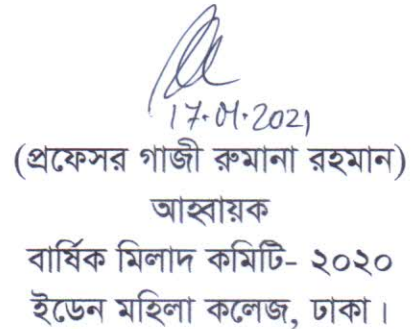 17.01.2021
(প্রফেসর গাজী রুমানা রহমান)
আহ্বায়ক
বার্ষিক মিলাদ কমিটি- ২০২০
ইডেন মহিলা কলেজ, ঢাকা।